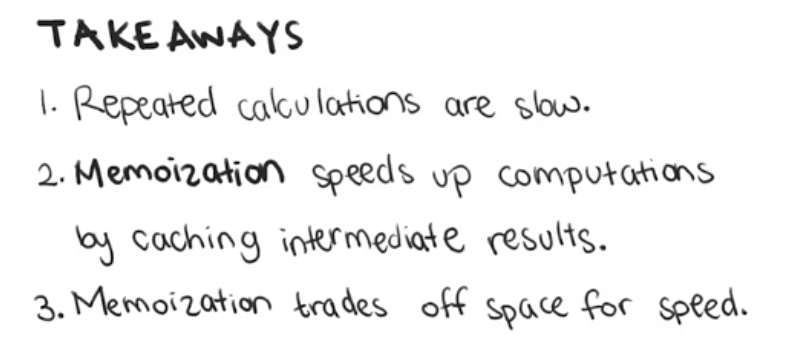 TAKEAWAYS
1. Repeated calculations are slow.
2. Memoization speeds up computations
by caching intermediate results.
3. Memoization trades off space for speed.